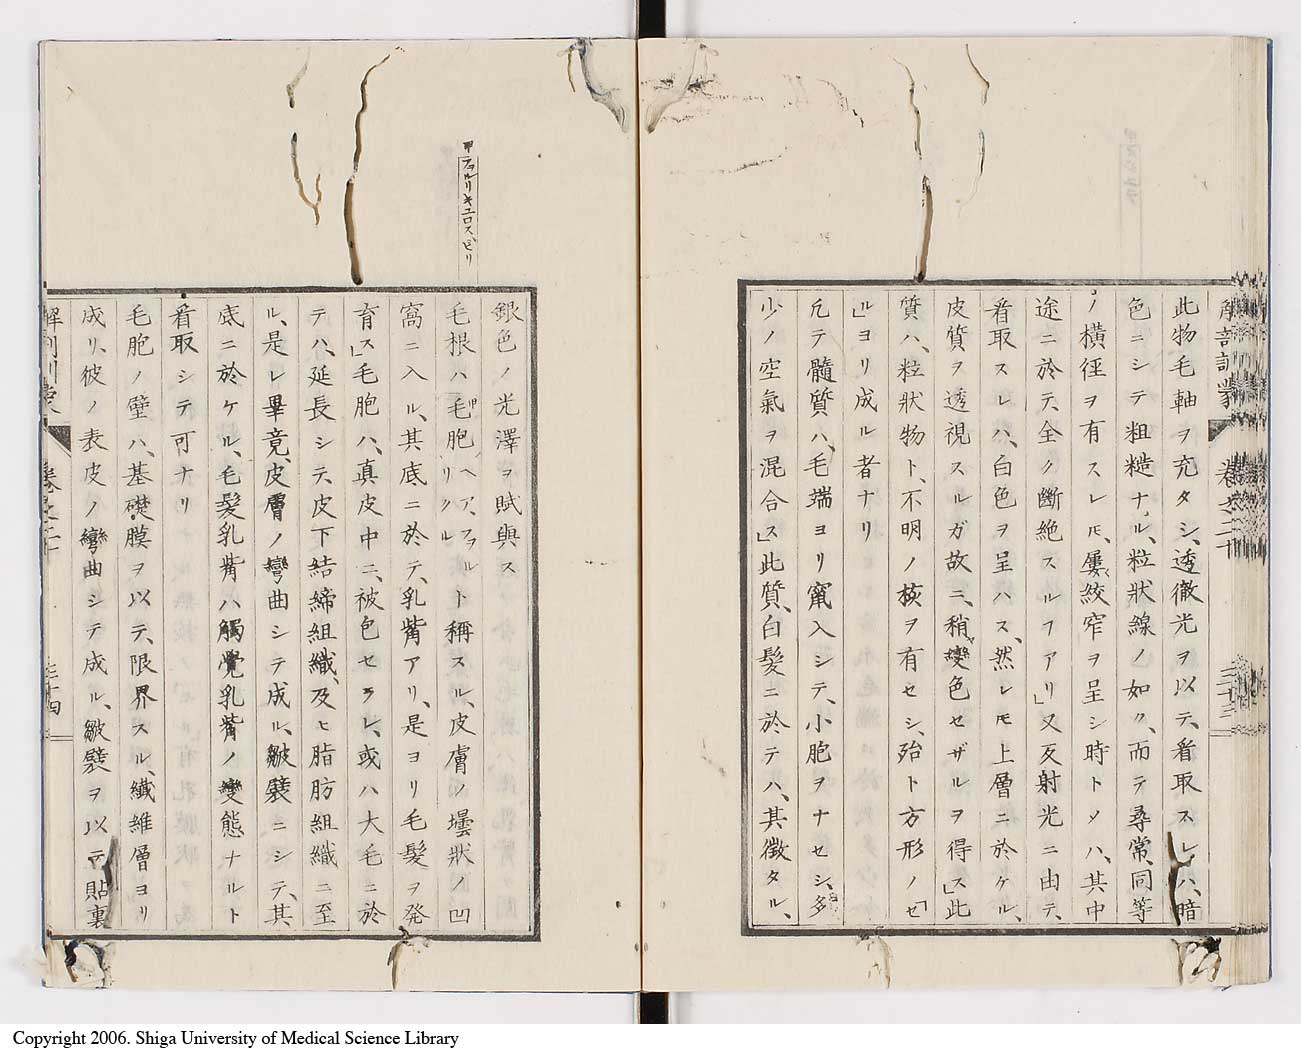 解剖訓蒙　卷之二十　三十三
此物毛軸ヲ充タシ、透徹光ヲ以テ、看取スレハ、暗
色ニシテ粗糙ナル、粒狀線ノ如ク、而テ尋常、同等
ノ橫徑ヲ有スレ𪜈、屢絞窄ヲ呈シ時トメハ、其中
途ニ於テ、全ク斷絶スルヿアリ」又反射光ニ由テ、
看取スレハ、白色ヲ呈ハス、然レ𪜈上層ニ於ケル、
皮質ヲ透視スルガ故ニ、稍變色セザルヲ得ス」此
質ハ、粒狀物ト、不明ノ核ヲ有セシ、殆ト方形ノ「セ
ル」ヨリ成ル者ナリ
凡テ髓質ハ、毛端ヨリ竄入シテ、小胞ヲナセシ、多
少ノ空氣ヲ混合ス」此質、白髮ニ於テハ、其徵タル、
銀色ノ光澤ヲ賦與ス
甲フォルリキュロスピリ
毛根ハ毛胞甲ヘアフォルリクルト稱スル、皮膚ノ壜狀ノ凹
窩ニ入ル、其底ニ於テ、乳觜アリ、是ヨリ毛髮ヲ發
育ス」毛胞ハ、真皮中ニ、被包セラレ、或ハ大毛ニ於
テハ、延長シテ、皮下結締組織、及ヒ脂肪組織ニ至
ル、是レ畢竟、皮膚ノ彎曲シテ成ル、皺襞ニシテ、其
底ニ於ケル、毛髮乳觜ハ觸覺乳觜ノ變態ナルト
看取シテ可ナリ
毛胞ノ壁ハ、基礎膜ヲ以テ、限界スル、纖維層ヨリ
成リ、彼ノ表皮ノ彎曲シテ成ル、皺襞ヲ以テ貼裏
卷之二十　三十四
Copyright 2006. Shiga University of Medical Science Library